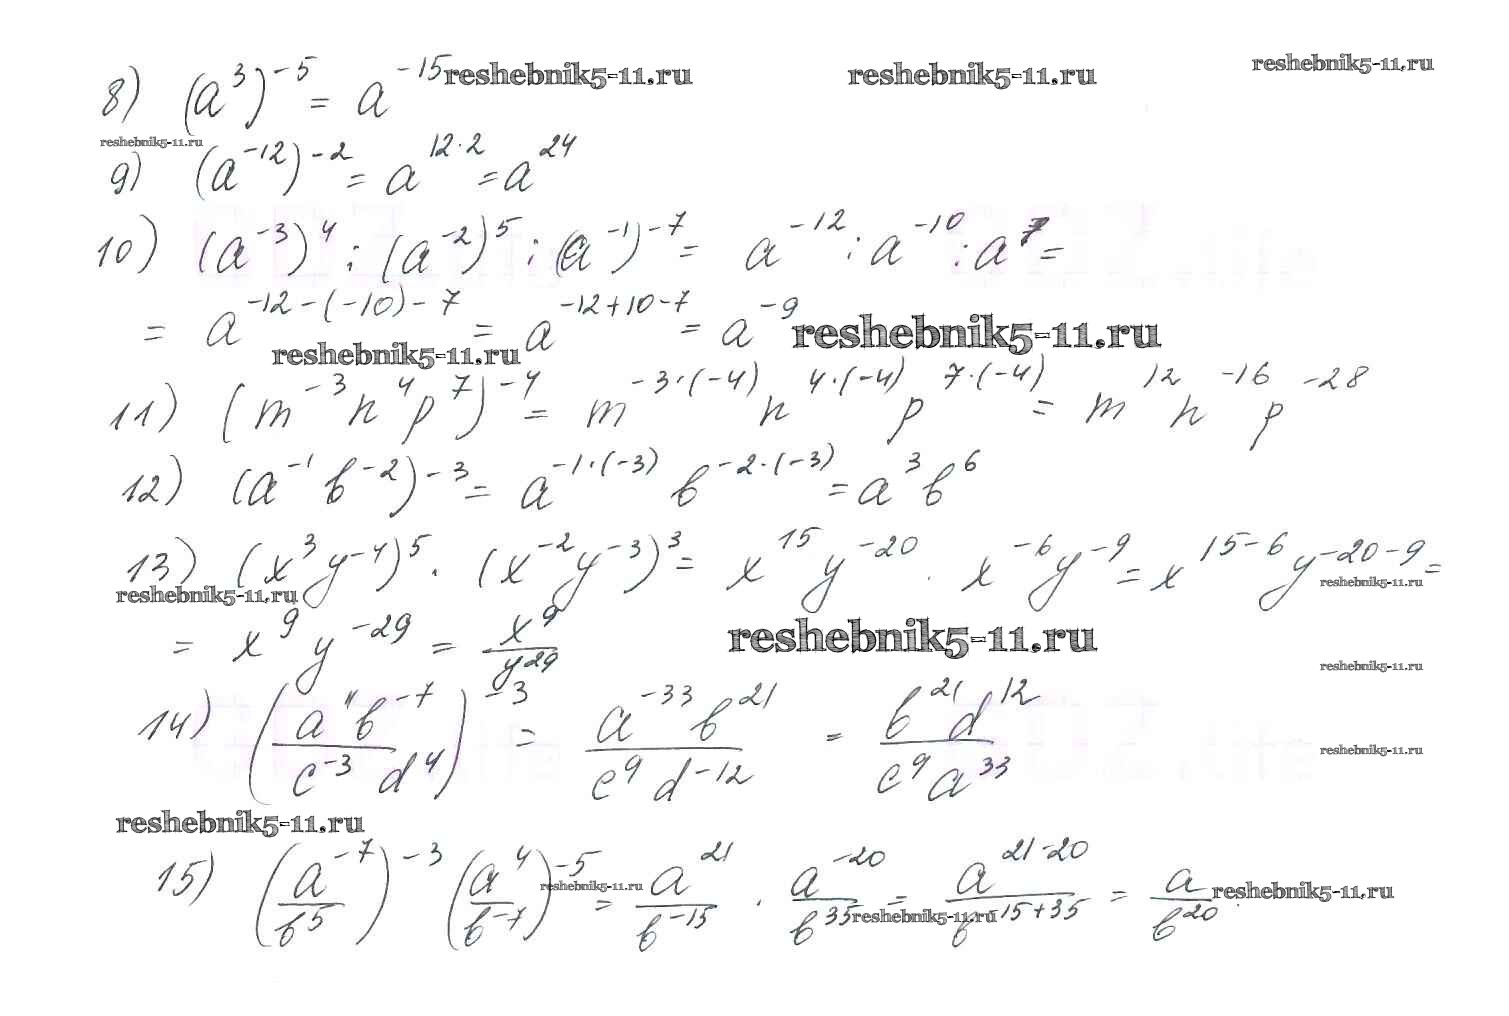 8) (a³)⁻⁵ = a⁻¹⁵ reshebnik5-11.ru reshebnik5-11.ru reshebnik5-11.ru
reshebnik5-11.ru
9) (a⁻¹²)⁻² = a¹²·² = a²⁴
10) (a⁻³)⁴ : (a⁻²)⁵ : (a⁻¹)⁻⁷ = a⁻¹² : a⁻¹⁰ : a⁷ =
= a^(-12-(-10)-7) = a^(-12+10-7) = a⁻⁹ reshebnik5-11.ru
reshebnik5-11.ru
11) (m⁻³n⁴p⁷)⁻⁴ = m^(-3·(-4)) n^(4·(-4)) p^(7·(-4)) = m¹² n⁻¹⁶ p⁻²⁸
12) (a⁻¹ b⁻²)⁻³ = a^(-1·(-3)) b^(-2·(-3)) = a³b⁶
13) (x³y⁻⁴)⁵ · (x⁻²y⁻³)³ = x¹⁵y⁻²⁰ · x⁻⁶y⁻⁹ = x^(15-6) y^(-20-9) =
reshebnik5-11.ru reshebnik5-11.ru
= x⁹y⁻²⁹ = x⁹/y²⁹ reshebnik5-11.ru
reshebnik5-11.ru
14) (a¹¹b⁻⁷/c⁻³d⁴)⁻³ = a⁻³³b²¹/c⁹d⁻¹² = b²¹d¹²/c⁹a³³
reshebnik5-11.ru
reshebnik5-11.ru
15) (a⁻⁷/b⁵)⁻³ (a⁴/b⁻⁷)⁻⁵ = a²¹/b⁻¹⁵ · a⁻²⁰/b³⁵ = a^(21-20)/b^(-15+35) = a/b²⁰ reshebnik5-11.ru
reshebnik5-11.ru reshebnik5-11.ru